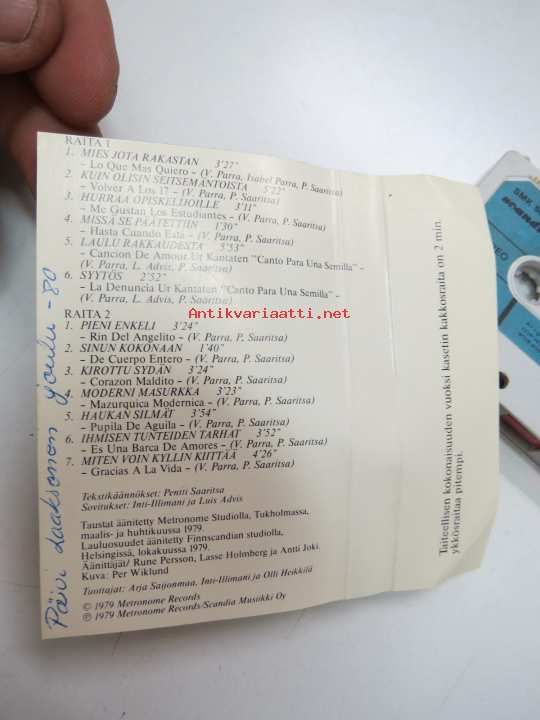 RAITA 1
1. MIES JOTA RAKASTAN 3'27"
- Lo Que Mas Quiero - (V. Parra, Isabel Parra, P. Saaritsa)
2. KUIN OLISIN SEITSEMÄNTOISTA 5'22"
- Volver A Los 17 - (V. Parra, P. Saaritsa)
3. HURRAA OPISKELIJOILLE 3'11"
- Me Gustan Los Estudiantes - (V. Parra, P. Saaritsa)
4. MISSÄ SE PÄÄTETTIIN 1'30"
- Hasta Cuando Esta - (V. Parra, P. Saaritsa)
5. LAULU RAKKAUDESTA 5'53"
- Cancion De Amour Ur Kantaten "Canto Para Una Semilla" -
(V. Parra, L. Advis, P. Saaritsa)
6. SYYTÖS 2'52"
- La Denuncia Ur Kantaten "Canto Para Una Semilla" -
(V. Parra, L. Advis, P. Saaritsa)
RAITA 2
1. PIENI ENKELI 3'24"
- Rin Del Angelito - (V. Parra, P. Saaritsa)
2. SINUN KOKONAAN 1'40"
- De Cuerpo Entero - (V. Parra, P. Saaritsa)
3. KIROTTU SYDÄN 3'24"
- Corazon Maldito - (V. Parra, P. Saaritsa)
4. MODERNI MASURKKA 3'23"
- Mazurquica Modernica - (V. Parra, P. Saaritsa)
5. HAUKAN SILMÄT 3'54"
- Pupila De Aguila - (V. Parra, P. Saaritsa)
6. IHMISEN TUNTEIDEN TARHAT 3'52"
- Es Una Barca De Amores - (V. Parra, P. Saaritsa)
7. MITEN VOIN KYLLIN KIITTÄÄ 4'26"
- Gracias A La Vida - (V. Parra, P. Saaritsa)
Tekstikäännökset: Pentti Saaritsa
Sovitukset: Inti-Illimani ja Luis Advis
Taustat äänitetty Metronome Studiolla, Tukholmassa,
maalis- ja huhtikuussa 1979.
Lauluosuudet äänitetty Finnscandian studiolla,
Helsingissä, lokakuussa 1979.
Äänittäjät/ Rune Persson, Lasse Holmberg ja Antti Joki.
Kuva: Per Wiklund
Tuottajat: Arja Saijonmaa, Inti-Illimani ja Olli Heikkilä
© 1979 Metronome Records
℗ 1979 Metronome Records-Scandia Musiikki Oy
Taiteellisen kokonaisuuden vuoksi kasetin kakkosraita on 2 min.
ykkösraitaa pitempi.
Päivi Laaksonen joulu -80
Antikvariaatti.net
SMK